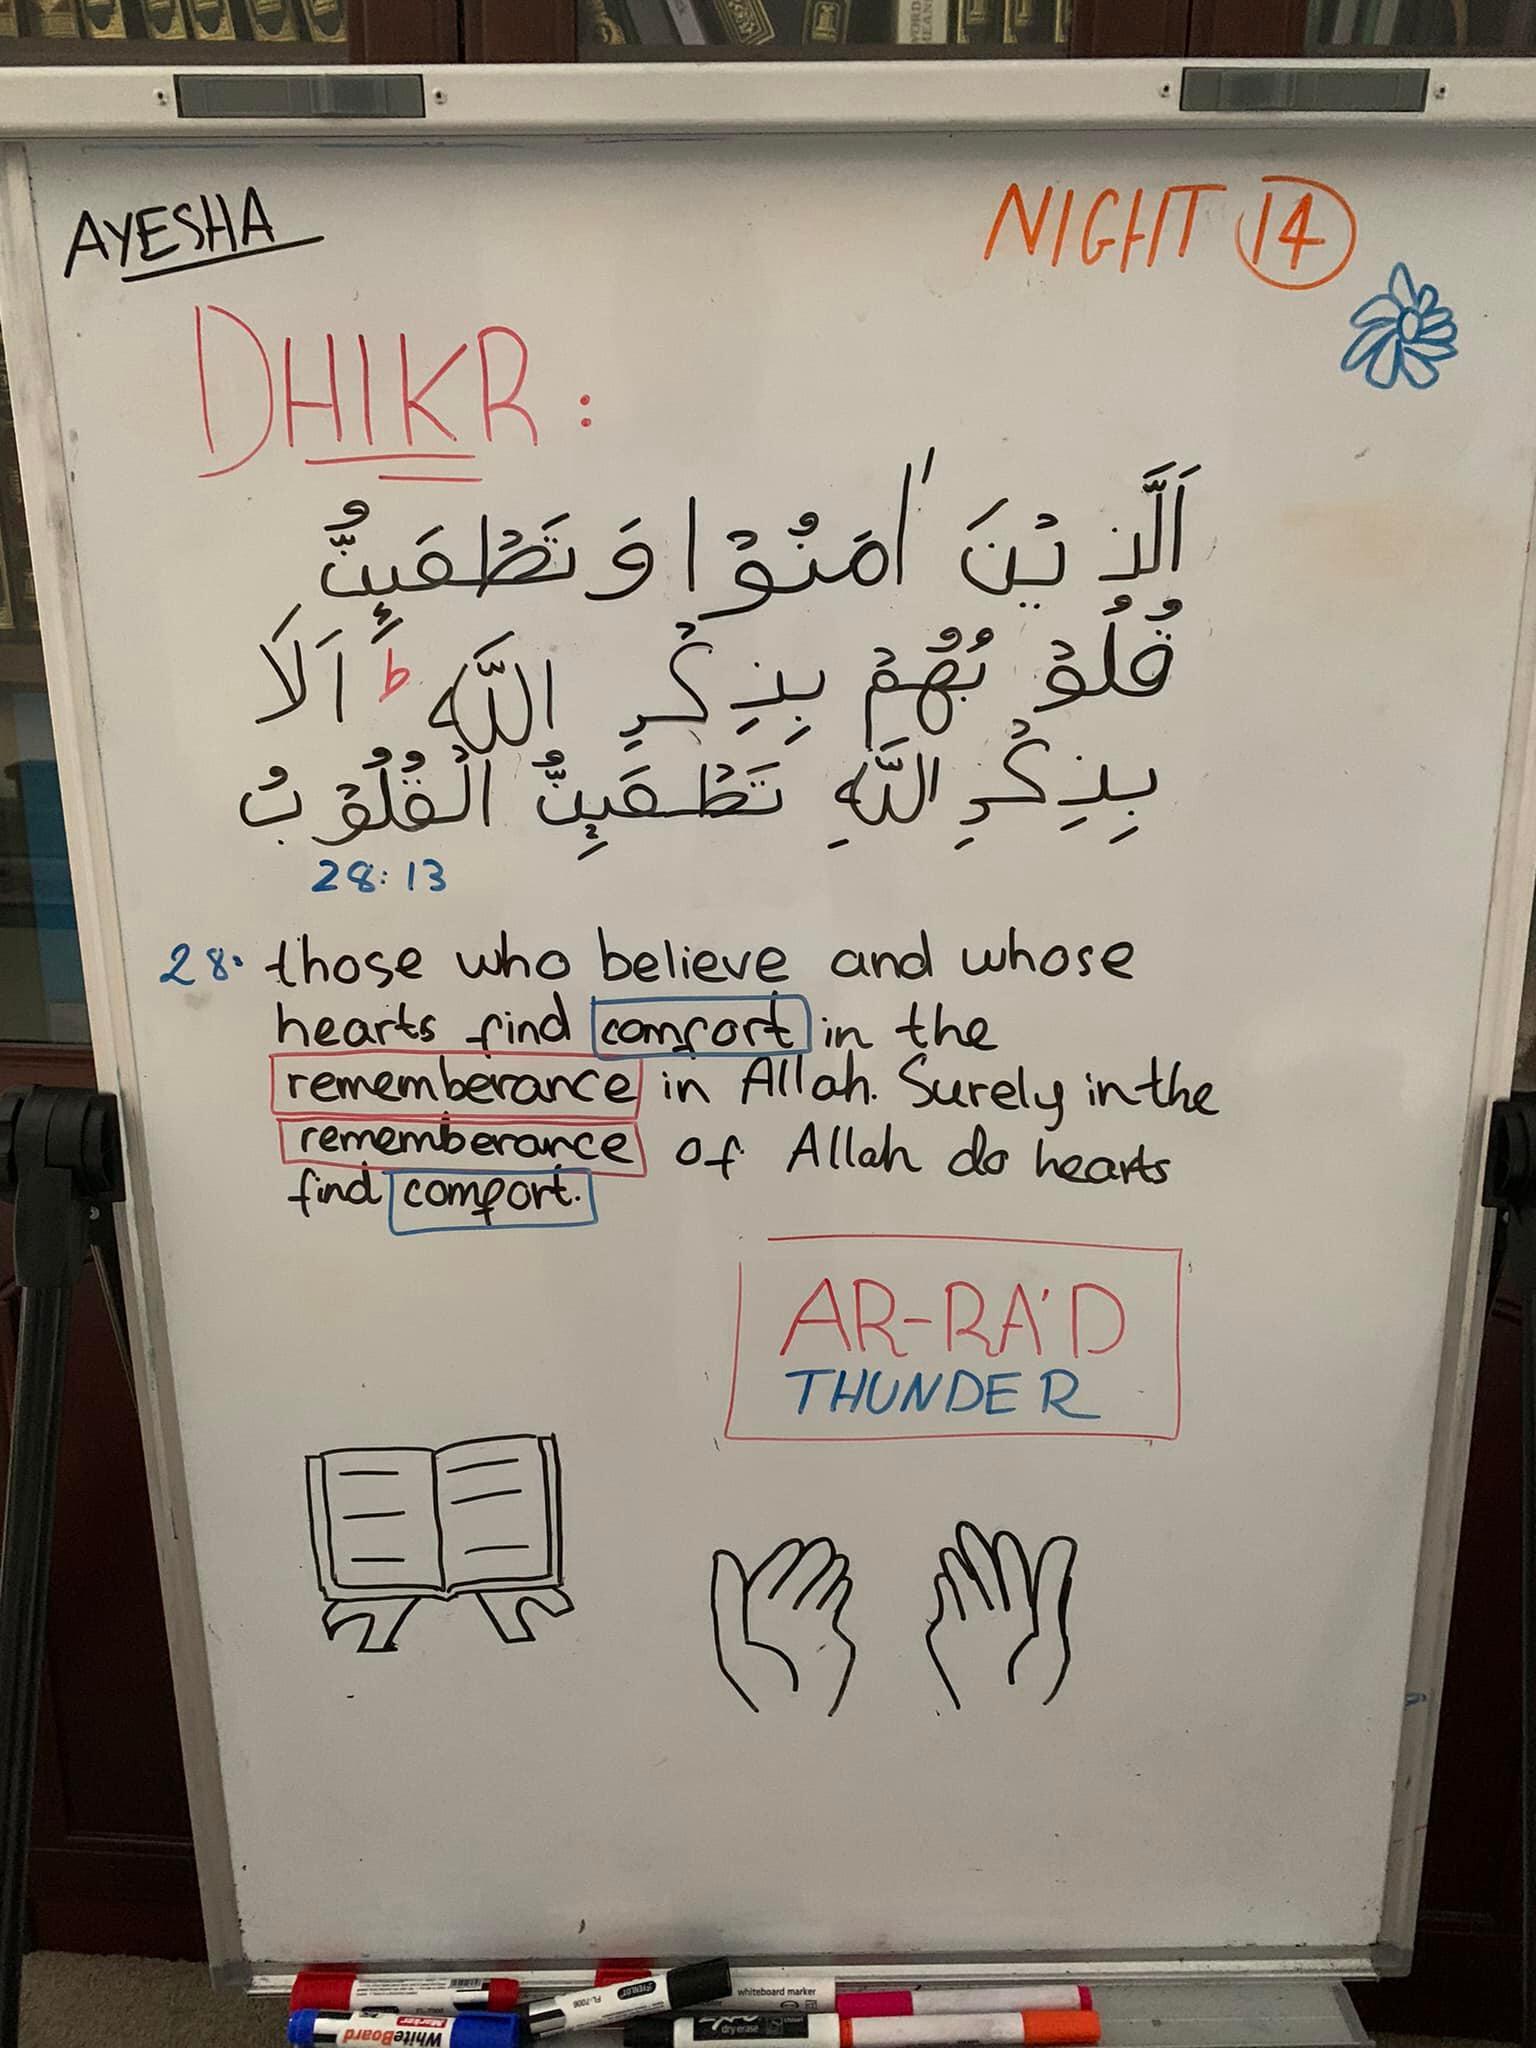 WORD
MEANI
AYESHA
NIGHT 14
DHIKR:
اَلَّذِيْنَ اٰمَنُوْا وَتَطْمَىِٕنُّ
قُلُوْبُهُمْ بِذِكْرِ اللّٰهِ ؕ اَلَا
بِذِكْرِ اللّٰهِ تَطْمَىِٕنُّ الْقُلُوْبُ
28:13
28. those who believe and whose
hearts find comfort in the
rememberance in Allah. Surely in the
rememberance of Allah do hearts
find comfort.
AR-RA'D
THUNDER
whiteboard marker
FL-7006
WHITEBOARD Marker
dry erase